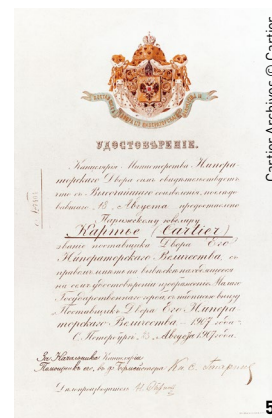 УДОСТОВѢРЕНІЕ.
Канцелярія Министерства Импера-
торскаго Двора симъ свидѣтельствуетъ,
что съ Высочайшаго соизволенія, послѣдо-
вавшаго 13 Августа предоставлено
Парижскому ювелиру
Картье (Cartier)
званіе поставщика Двора Его
Императорскаго Величества, съ
правомъ имѣть на
Государственнаго герба, съ внизу
„Поставщикъ Двора Его Импера-
торскаго Величества — 1907 года“
С. Петербургъ, Августа 1907 года.
За Начальника Канцеляріи
Дѣлопроизводитель
Cartier Archives © Cartier
5